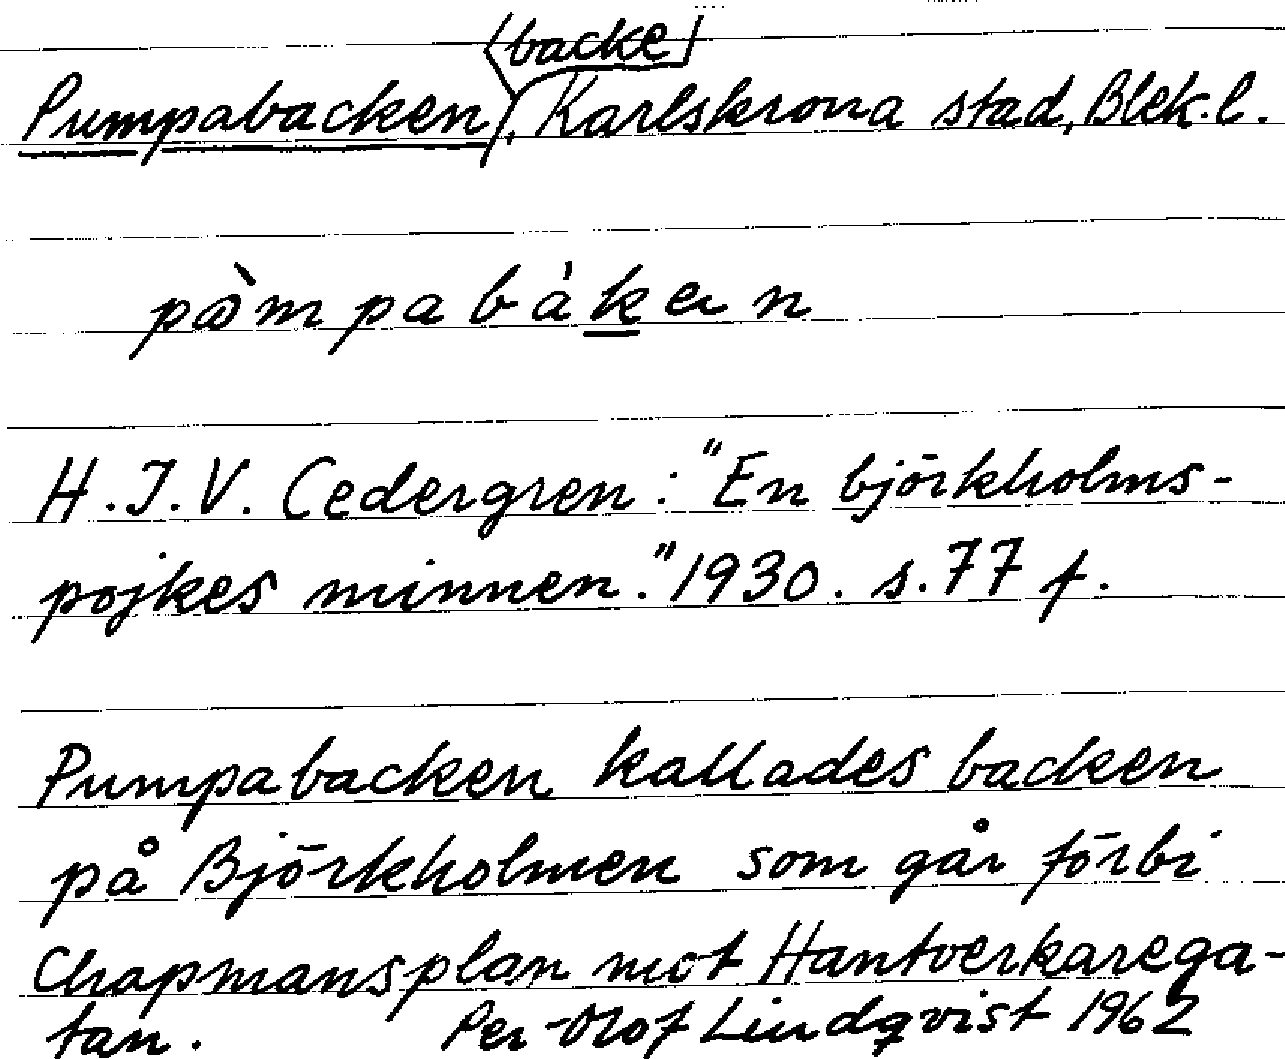 (backe)
Pumpabacken, Karlskrona stad, Blek. l.
pə̀mpabák̲en
H. J. V. Cedergren: "En björkholms-
pojkes minnen." 1930. s. 77 f.
Pumpabacken kallades backen
på Björkholmen som går förbi
Chapmansplan mot Hantverkarega-
tan. Per-Olof Lindqvist 1962